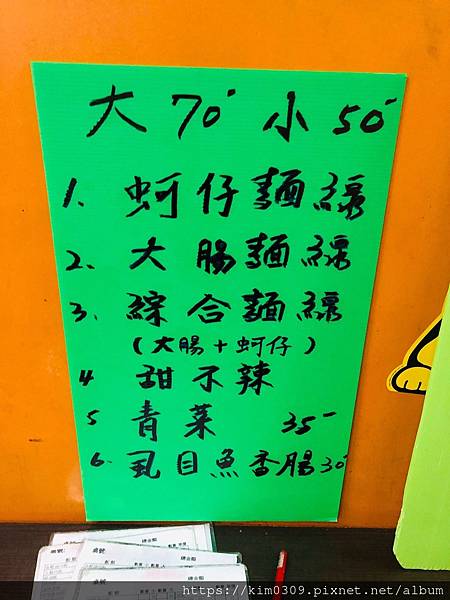 大 70 小 50
1. 蚵仔麵線
2. 大腸麵線
3. 綜合麵線
(大腸+蚵仔)
4 甜不辣
5 青菜 35
6. 虱目魚香腸30
桌號
桌號
桌號
https://kim0309.pixnet.net/album